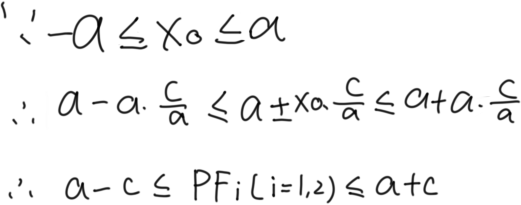 ∵ -a ≤ x₀ ≤ a
∴ a - a·c/a ≤ a ± x₀·c/a ≤ a + a·c/a
∴ a - c ≤ PFi(i=1,2) ≤ a + c